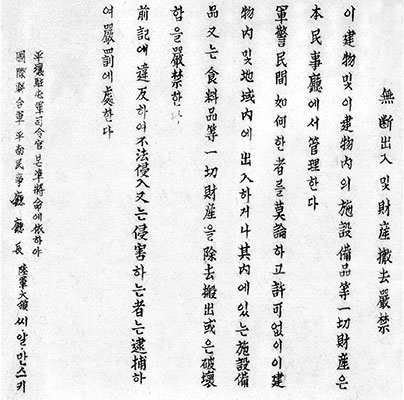 無断出入 및 財産撤去嚴禁
이建物 및 이建物內의施設備品等一切財産은
本民事廳에서管理한다
軍警民間如何한者를莫論하고許可없이이建
物內및地域內에出入하거나其內에있는施設備
品又는食料品等一切財産을除去搬出或은破壞
함을嚴禁한다
前記에違反하여不法侵入又는侵害하는者는逮捕하
여嚴罰에處한다
平壤駐屯軍司令官 准將命에依하야
國際聯合軍 平南民事廳 廳長 陸軍大領 씨·알·만스키